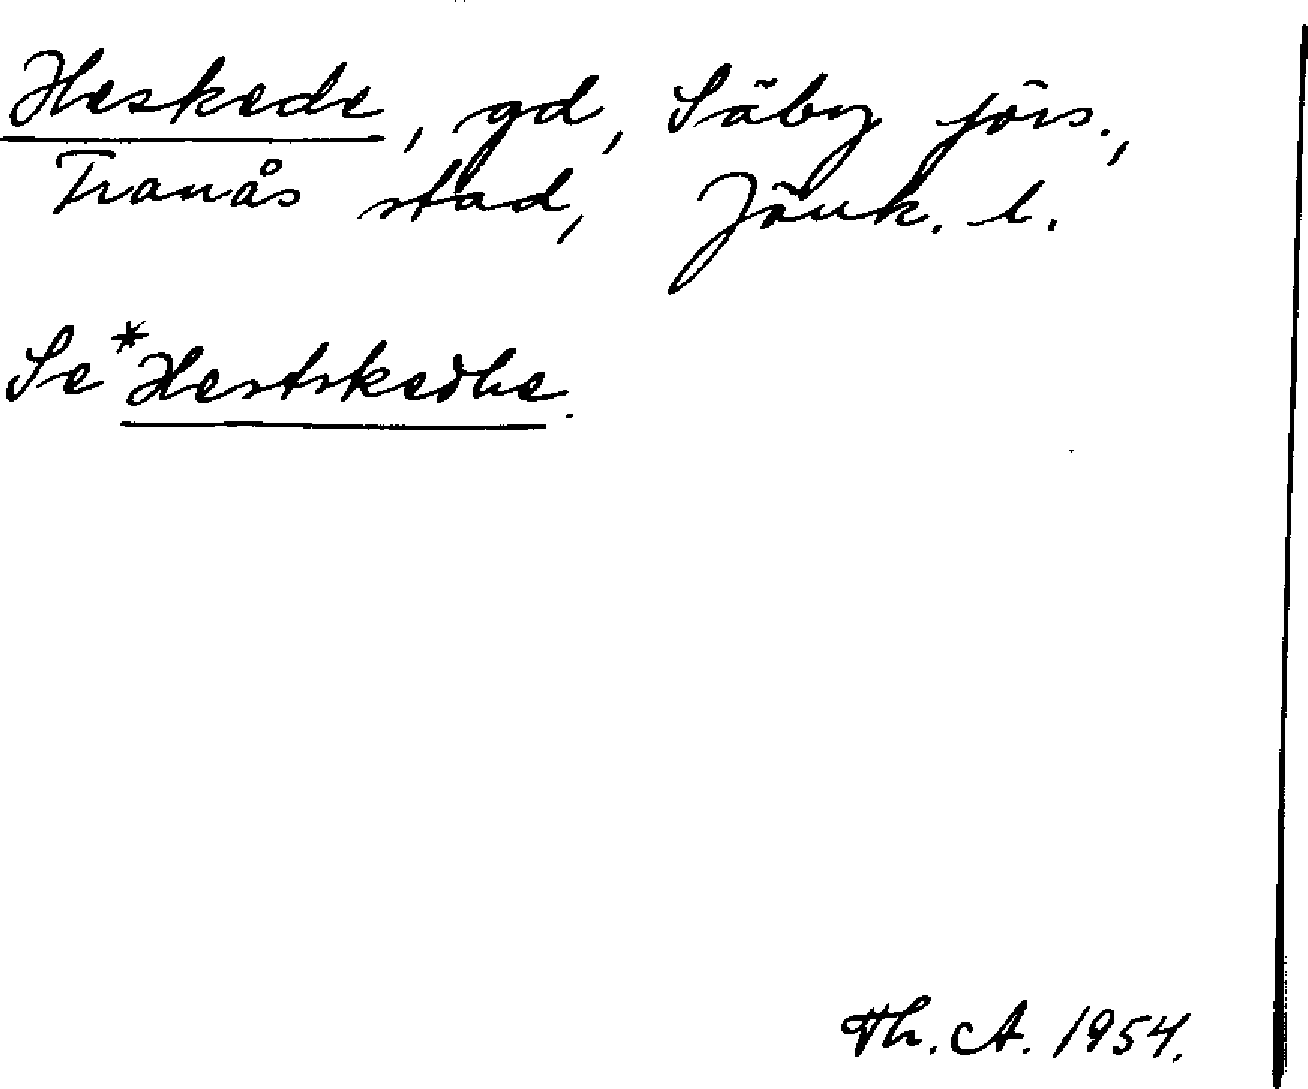 Heskede, gd, Säby förs.,
Tranås stad, Jönk. l.
Se *Hestskedhe.
Th. A. 1954.